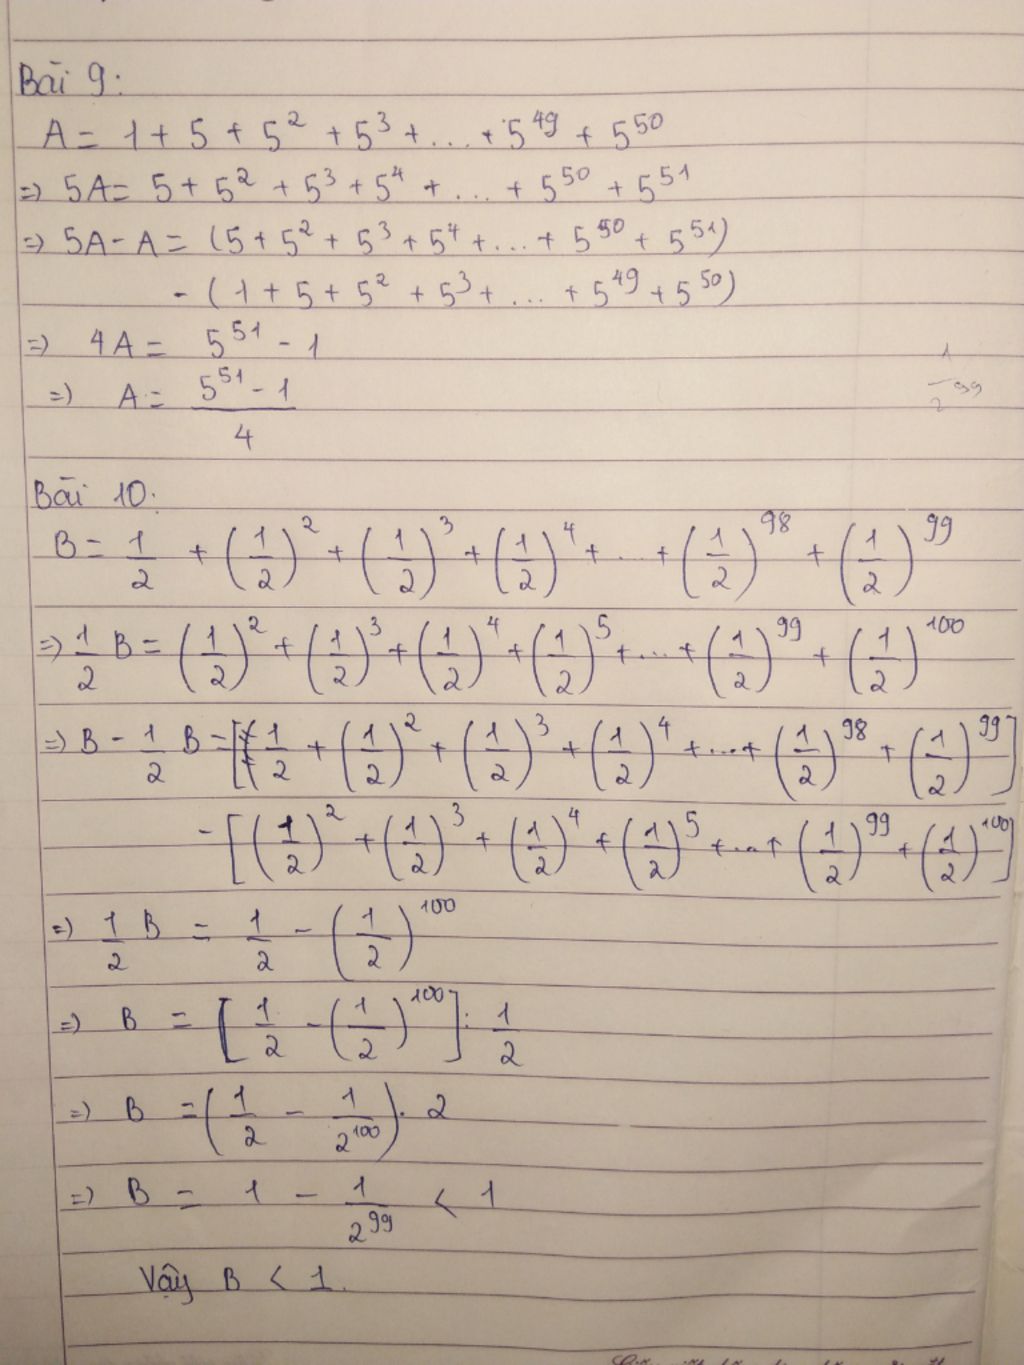 Bài 9:
A = 1 + 5 + 5² + 5³ + ... + 5⁴⁹ + 5⁵⁰
=> 5A = 5 + 5² + 5³ + 5⁴ + ... + 5⁵⁰ + 5⁵¹
=> 5A - A = (5 + 5² + 5³ + 5⁴ + ... + 5⁵⁰ + 5⁵¹)
- (1 + 5 + 5² + 5³ + ... + 5⁴⁹ + 5⁵⁰)
=> 4A = 5⁵¹ - 1
=> A = (5⁵¹ - 1)/4
1/2⁹⁹
Bài 10:
B = 1/2 + (1/2)² + (1/2)³ + (1/2)⁴ + ... + (1/2)⁹⁸ + (1/2)⁹⁹
=> 1/2 B = (1/2)² + (1/2)³ + (1/2)⁴ + (1/2)⁵ + ... + (1/2)⁹⁹ + (1/2)¹⁰⁰
=> B - 1/2 B = [1/2 + (1/2)² + (1/2)³ + (1/2)⁴ + ... + (1/2)⁹⁸ + (1/2)⁹⁹]
- [(1/2)² + (1/2)³ + (1/2)⁴ + (1/2)⁵ + ... + (1/2)⁹⁹ + (1/2)¹⁰⁰]
=> 1/2 B = 1/2 - (1/2)¹⁰⁰
=> B = [1/2 - (1/2)¹⁰⁰] : 1/2
=> B = (1/2 - 1/2¹⁰⁰) . 2
=> B = 1 - 1/2⁹⁹ < 1
Vậy B < 1.